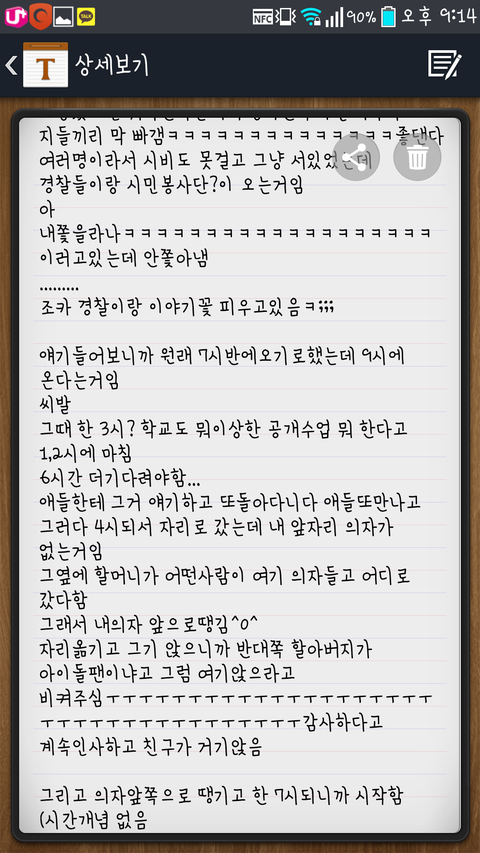 U+
TALK
NFC
90%
오후 9:14
T
상세보기
지들끼리 막 빠갬ㅋㅋㅋㅋㅋㅋㅋㅋㅋㅋㅋㅋㅋㅋ졸댄다
여러명이라서 시비도 못걸고 그냥 서있었는데
경찰들이랑 시민봉사단?이 오는거임
아
내쫓을라나ㅋㅋㅋㅋㅋㅋㅋㅋㅋㅋㅋㅋㅋㅋㅋㅋㅋㅋㅋ
이러고있는데 안쫓아냄
.........
조카 경찰이랑 이야기꽃 피우고있음ㅋ;;;
얘기들어보니까 원래 7시반에오기로했는데 9시에
온다는거임
씨발
그때 한 3시? 학교도 뭐이상한 공개수업 뭐 한다고
1,2시에 마침
6시간 더기다려야함...
애들한테 그거 얘기하고 또돌아다니다 애들또만나고
그러다 4시되서 자리로 갔는데 내 앞자리 의자가
없는거임
그옆에 할머니가 어떤사람이 여기 의자들고 어디로
갔다함
그래서 내의자 앞으로땡김^0^
자리옮기고 그기 앉으니까 반대쪽 할아버지가
아이돌팬이냐고 그럼 여기앉으라고
비켜주심ㅜㅜㅜㅜㅜㅜㅜㅜㅜㅜㅜㅜㅜㅜㅜㅜㅜㅜㅜㅜ
ㅜㅜㅜㅜㅜㅜㅜㅜㅜㅜㅜㅜㅜㅜㅜㅜ감사하다고
계속인사하고 친구가 거기앉음
그리고 의자앞쪽으로 땡기고 한 7시되니까 시작함
(시간개념 없음